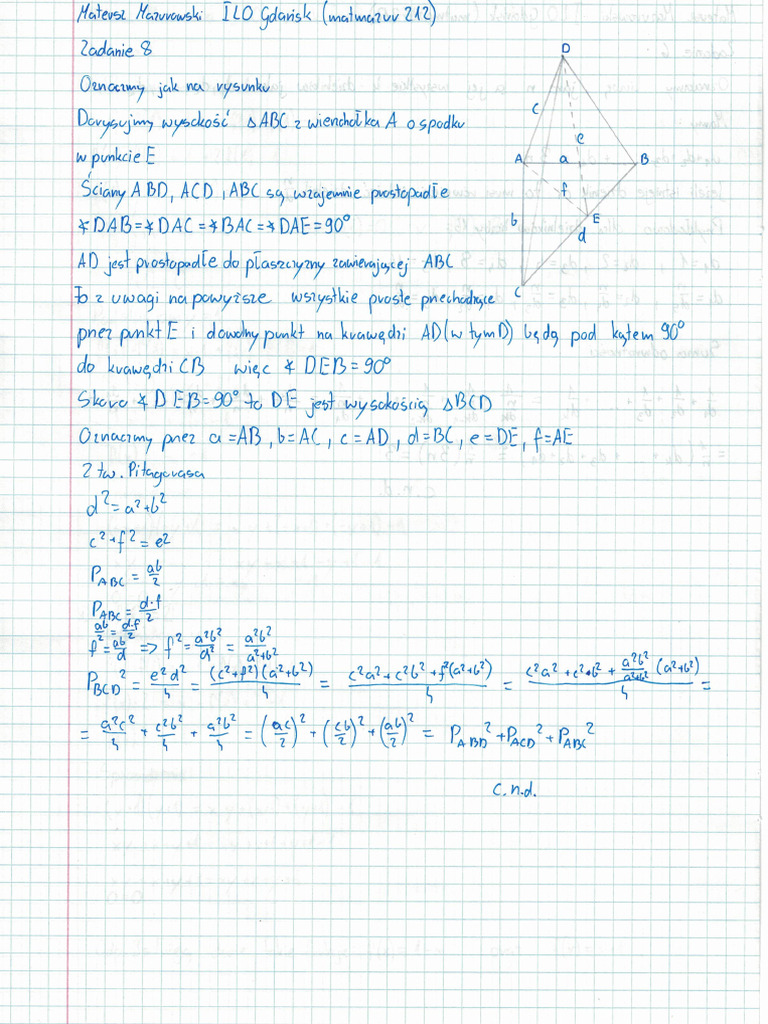 Mateusz Mazurowski ILO Gdańsk (matmazur 212)
Zadanie 8
Oznaczmy jak na rysunku
Dorysujmy wysokość △ABC z wierzchołka A o spodku
w punkcie E
Ściany ABD, ACD, ABC są wzajemnie prostopadłe
∢DAB=∢DAC=∢BAC=∢DAE=90°
AD jest prostopadłe do płaszczyzny zawierającej ABC
To z uwagi na powyższe wszystkie proste przechodzące
przez punkt E i dowolny punkt na krawędzi AD (w tym D) będą pod kątem 90°
do krawędzi CB więc ∢DEB=90°
Skoro ∢DEB=90° to DE jest wysokością △BCD
Oznaczmy przez a=AB, b=AC, c=AD, d=BC, e=DE, f=AE
Z tw. Pitagorasa
d²=a²+b²
c²+f²=e²
P_ABC = ab/2
P_ABC = d·f/2
ab/2 = d·f/2
f = ab/d => f² = a²b²/d² = a²b²/(a²+b²)
P_BCD² = e²d²/4 = (c²+f²)(a²+b²)/4 = (c²a²+c²b²+f²(a²+b²))/4 = (c²a²+c²b²+a²b²/(a²+b²) (a²+b²))/4 =
= a²c²/4 + c²b²/4 + a²b²/4 = (ac/2)² + (cb/2)² + (ab/2)² = P_ABD² + P_ACD² + P_ABC²
c.n.d.
D
c
e
A
a
B
f
b
E
d
C